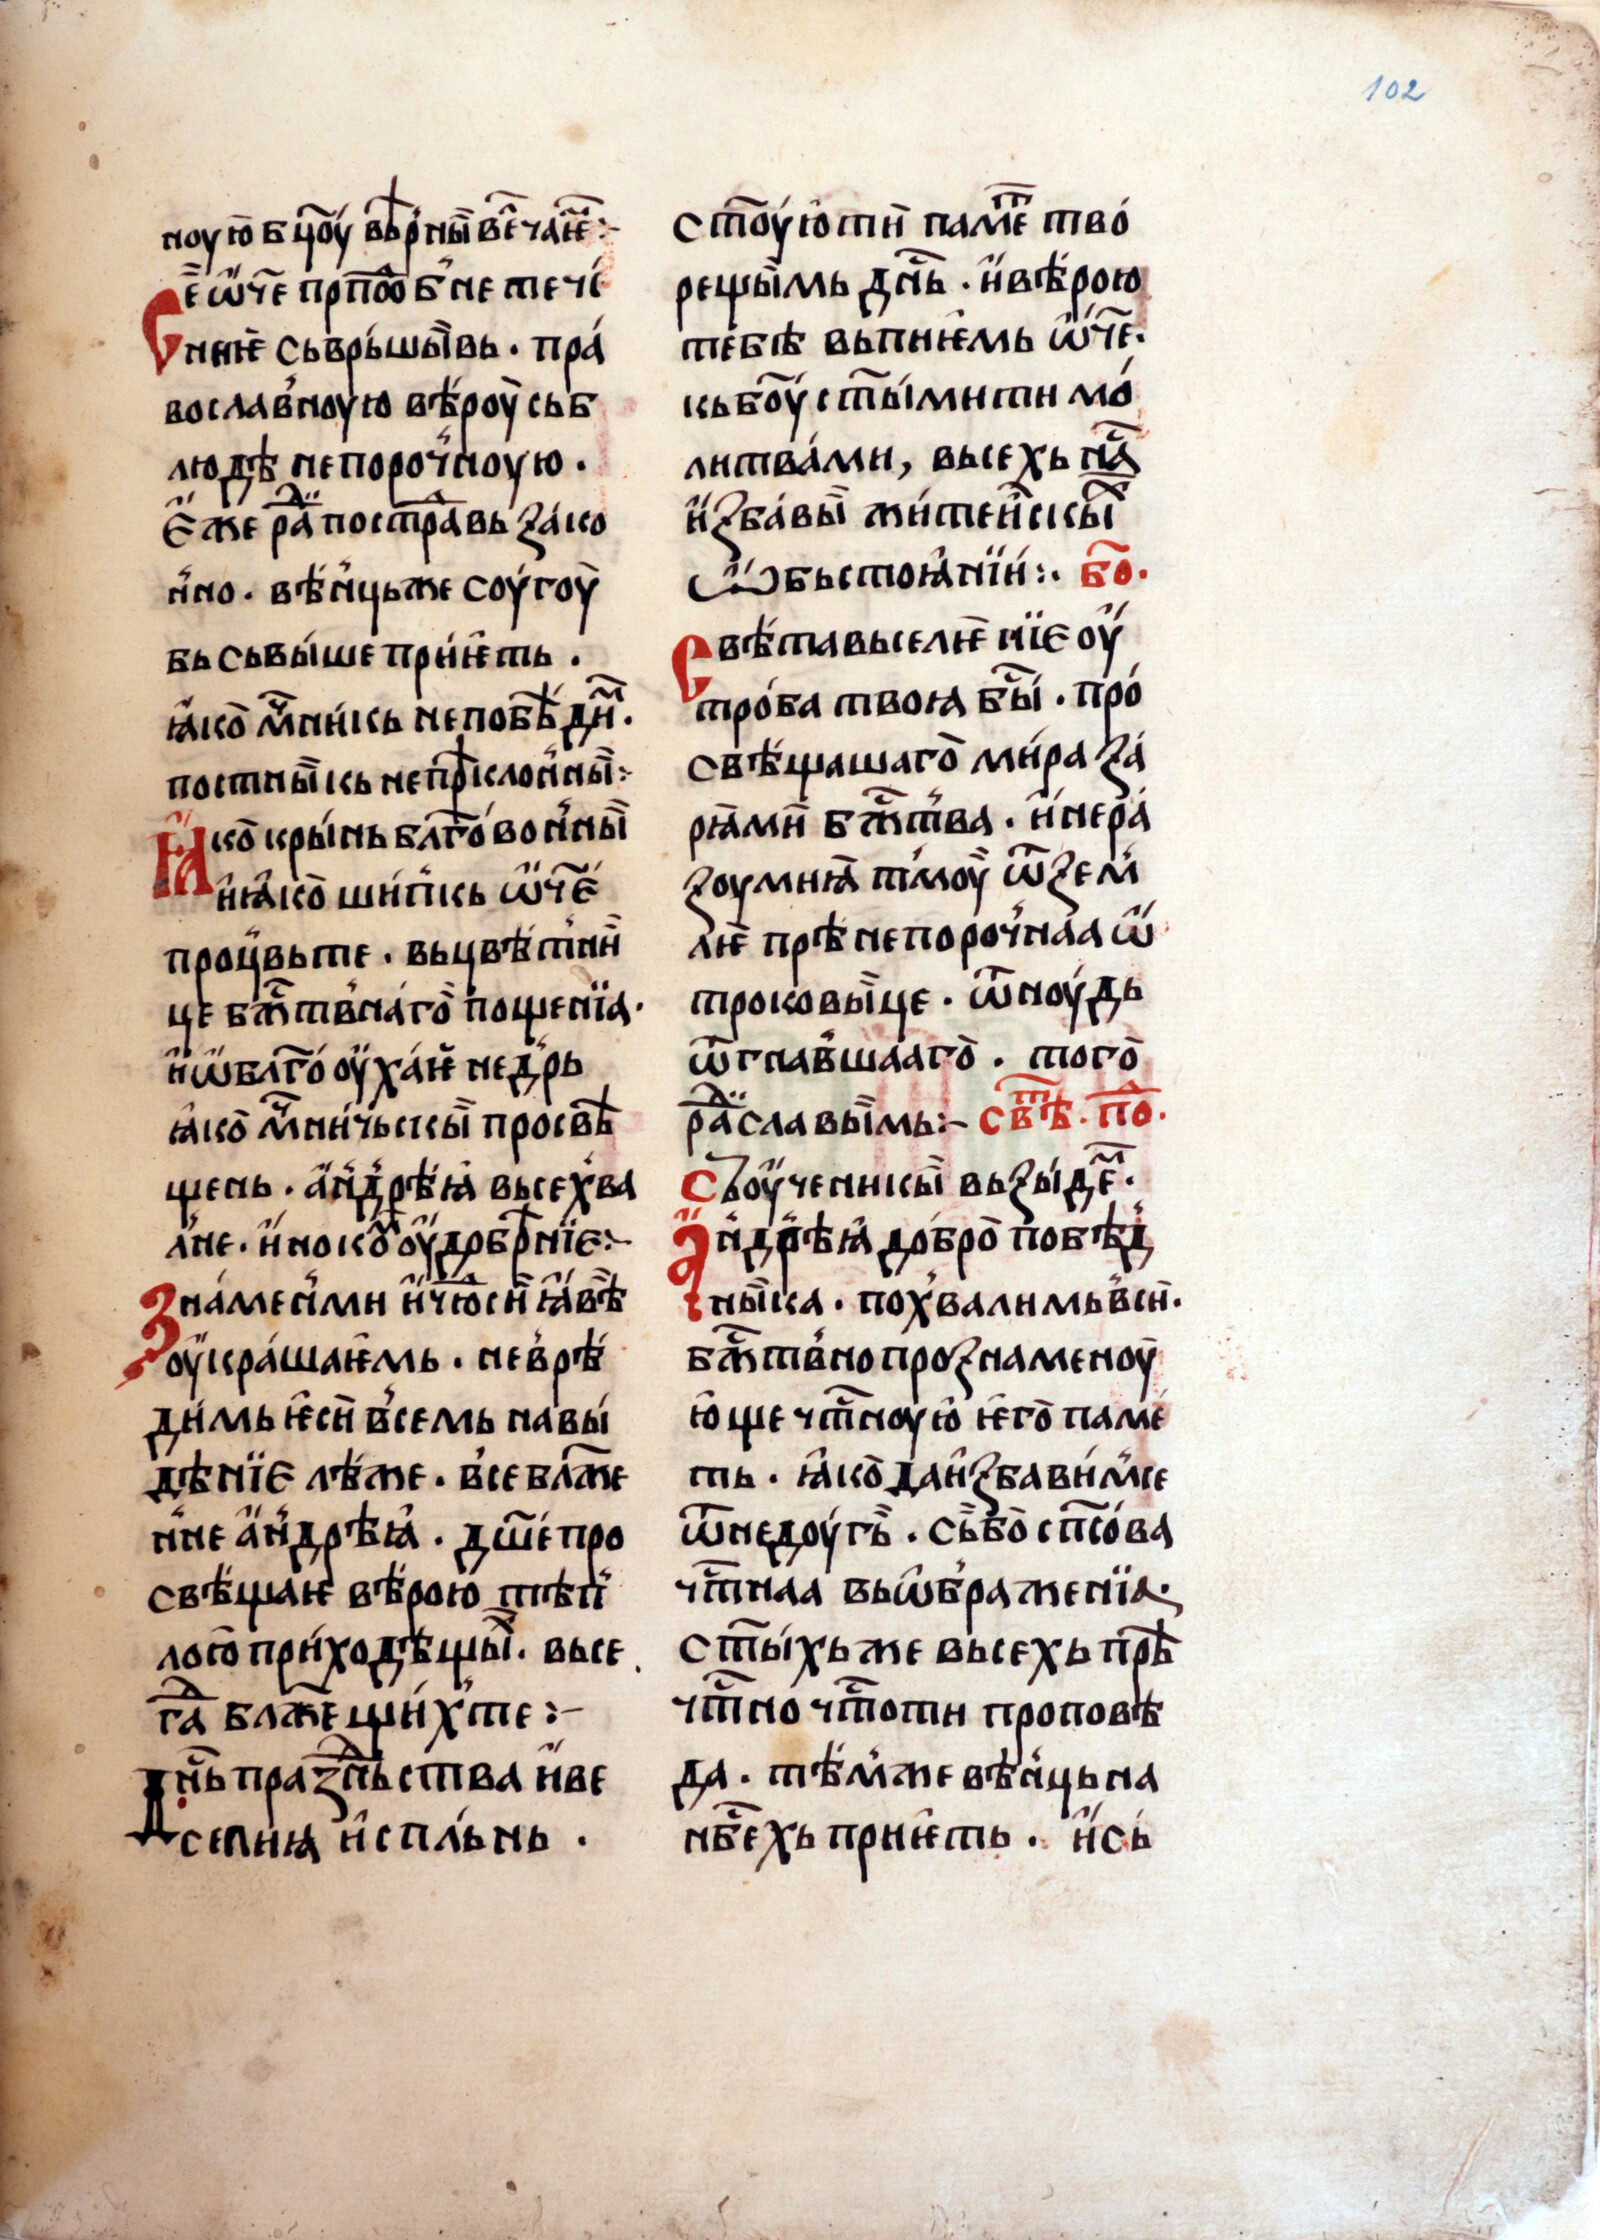 102
ноую̀ б҃цоу́ вѣ́рнꙑ̏ ве҃ча́ѥ :~
Се҃ ѿч҃е прп҃обⷣне тече́
нїѥ сьврь́шꙑвь · пра́
вославноую вѣ́роу̏ сьб
людѣ непороч́ноую ·
е҆́же раⷣ постраⷣвь за́ко
н́но · вѣн́ць же соу́гоу̏
бь сьвꙑ́ше прїѥ́ть ·
ꙗ҆́ко мⷱ҇ни́кь непобѣдиⷨ ·
постнꙑ̏кь непрѣ́клон́нꙑ̏ :~
Ꙗ҆́ко̀ крꙑ́нь бл҃го́вон́нꙑ̏
и҆ꙗ҆́ко̀ ши́п́кь ѿч҃е
процвьте · вьцвѣт́ни̏
це бжⷭ҇твна́го̀ пощенїа ·
и҆ѡ҆бл҃го́оу҆ха́ѥ недрь
ꙗ҆́ко̀ мⷱ҇ни́чьскꙑ̏ просвѣ
щень · а҆н́дрѣꙗ҆ высехва
л́не · и҆нокоⷨ оу҆дръ́бре́нїе :~
Знаменми и҆чюⷣсѝ ꙗ҆́вѣ
оу҆кра́шаѥмь · невре́
ди́мь ѥ҆сѝ всемь навꙑ́
дѣнїе лѣ́же · в́се бл҃же
н́не а҆н́дрѣꙗ҆ · дш҃е́ про
свѣ́щаѥ вѣ́рою̀ тѣп́
лого̀ прихо́дѣщꙑⷯ · высе
гⷣа бл҃жещи́хте :~
Дн҃ь празⷣньства и҆ве
селиꙗ и҆спль́нь ·
ст҃оу́ю ти̏ памеⷮ тво́
рещꙑ̏мь дн҃ь · и҆вѣ́рою
тебѣ́ вьпиѥ҆мь ѿч҃е ·
кьб҃оу́ ст҃ꙑ́мити мо́
литва́ми, высехь наⷭ҇
и҆зба́вꙑ̏ жите́и̏скꙑⷯ
ѡ҆бьстоꙗ҆нїи́ :· б҃о ·
Свѣта выселѥ́нїе оу҆
тро́ба твоꙗ бⷭ҇ꙑ́ · про́
свѣ́щашаго̀ ми́ра за́
рꙗ̀мѝ бжⷭ҇тва · и҆ нера́
зоумниꙗ̀ тмоу̀ ѿзем́
лѥ прѣнепороч́наа ѿ
троковꙑ̏це · ѿноу́дь
ѿгнав́шааго̀ · того̀
раⷣ славꙑ̏мь :~ свѣⷮ · пⷣо ·
Сь оу҆ченикꙑ̏ вьзꙑ́деⷨ ·
А҆н́дрѣꙗ҆ до́бро̀ побѣ́д́
нꙑ̏ка · похвалимь в́сѝ ·
бжⷭ҇твно прознаменоу̏
ю҆ще чⷭ҇тноую̀ ѥ҆го̀ паме́
ть · ꙗ҆́ко̀ даи҆зба́ви́м́се
ѿнедоу́гь̀ · сь̀бо̀ сп҃со́ва
чⷭ҇тнаа вьѡ҆браженїа ·
ст҃ꙑ́хь же высехь прѣ
чⷭ҇тно́ чⷭ҇тоти проповѣ
да · тѣ́м́же вѣн́ць на
нб҃ехь прїѥ́ть · и҆сь́